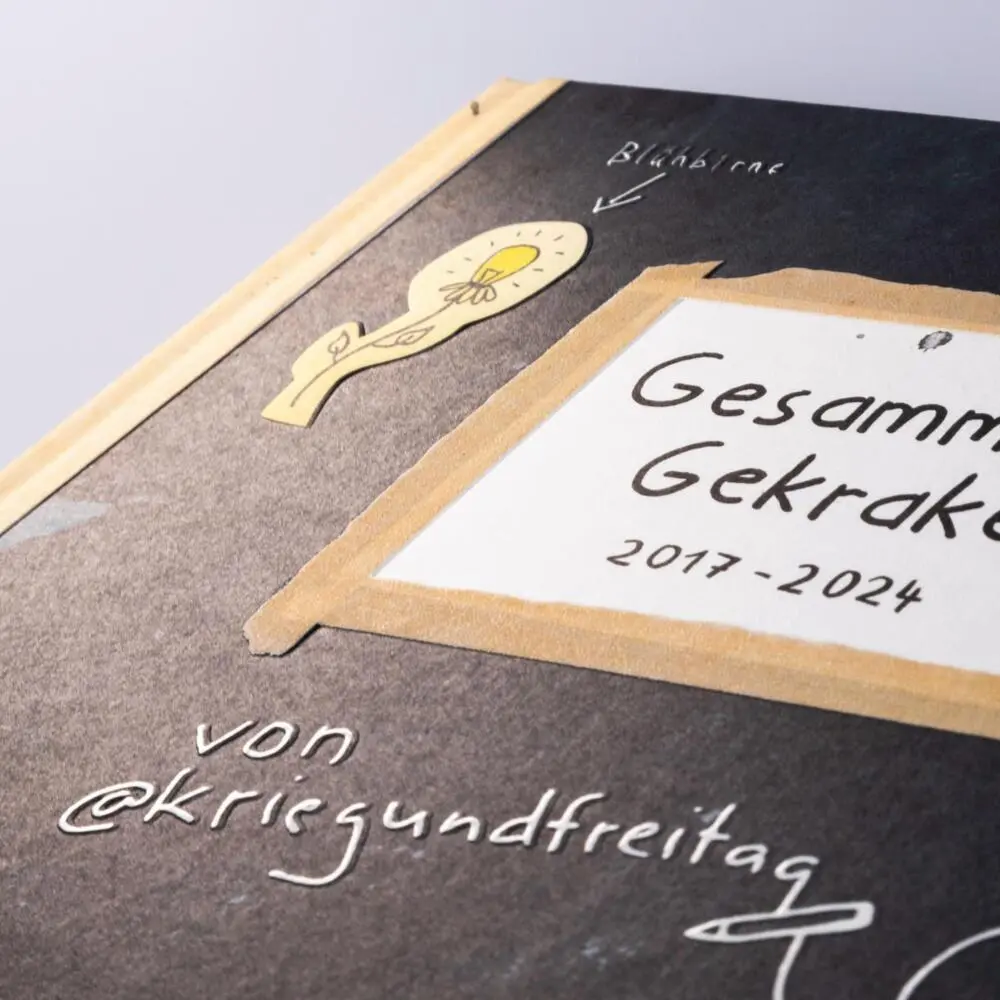 Blühbirne
Gesamm
Gekrake
2017 - 2024
von
@kriegundfreitag